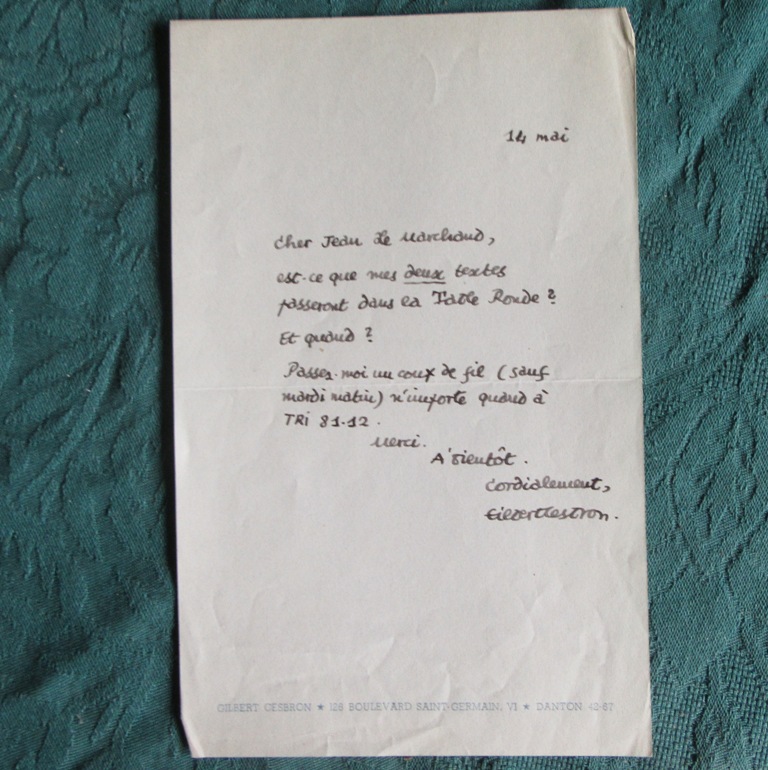 14 mai
Cher Jean Le Marchand,
est-ce que mes deux textes
passeront dans la Table Ronde ?
Et quand ?
Passez-moi un coup de fil (sauf
mardi matin) n'importe quand à
TRI 81-12.
Merci.
A bientôt.
Cordialement,
GilbertCesbron.
GILBERT CESBRON ★ 128 BOULEVARD SAINT-GERMAIN, VI ★ DANTON 42-67